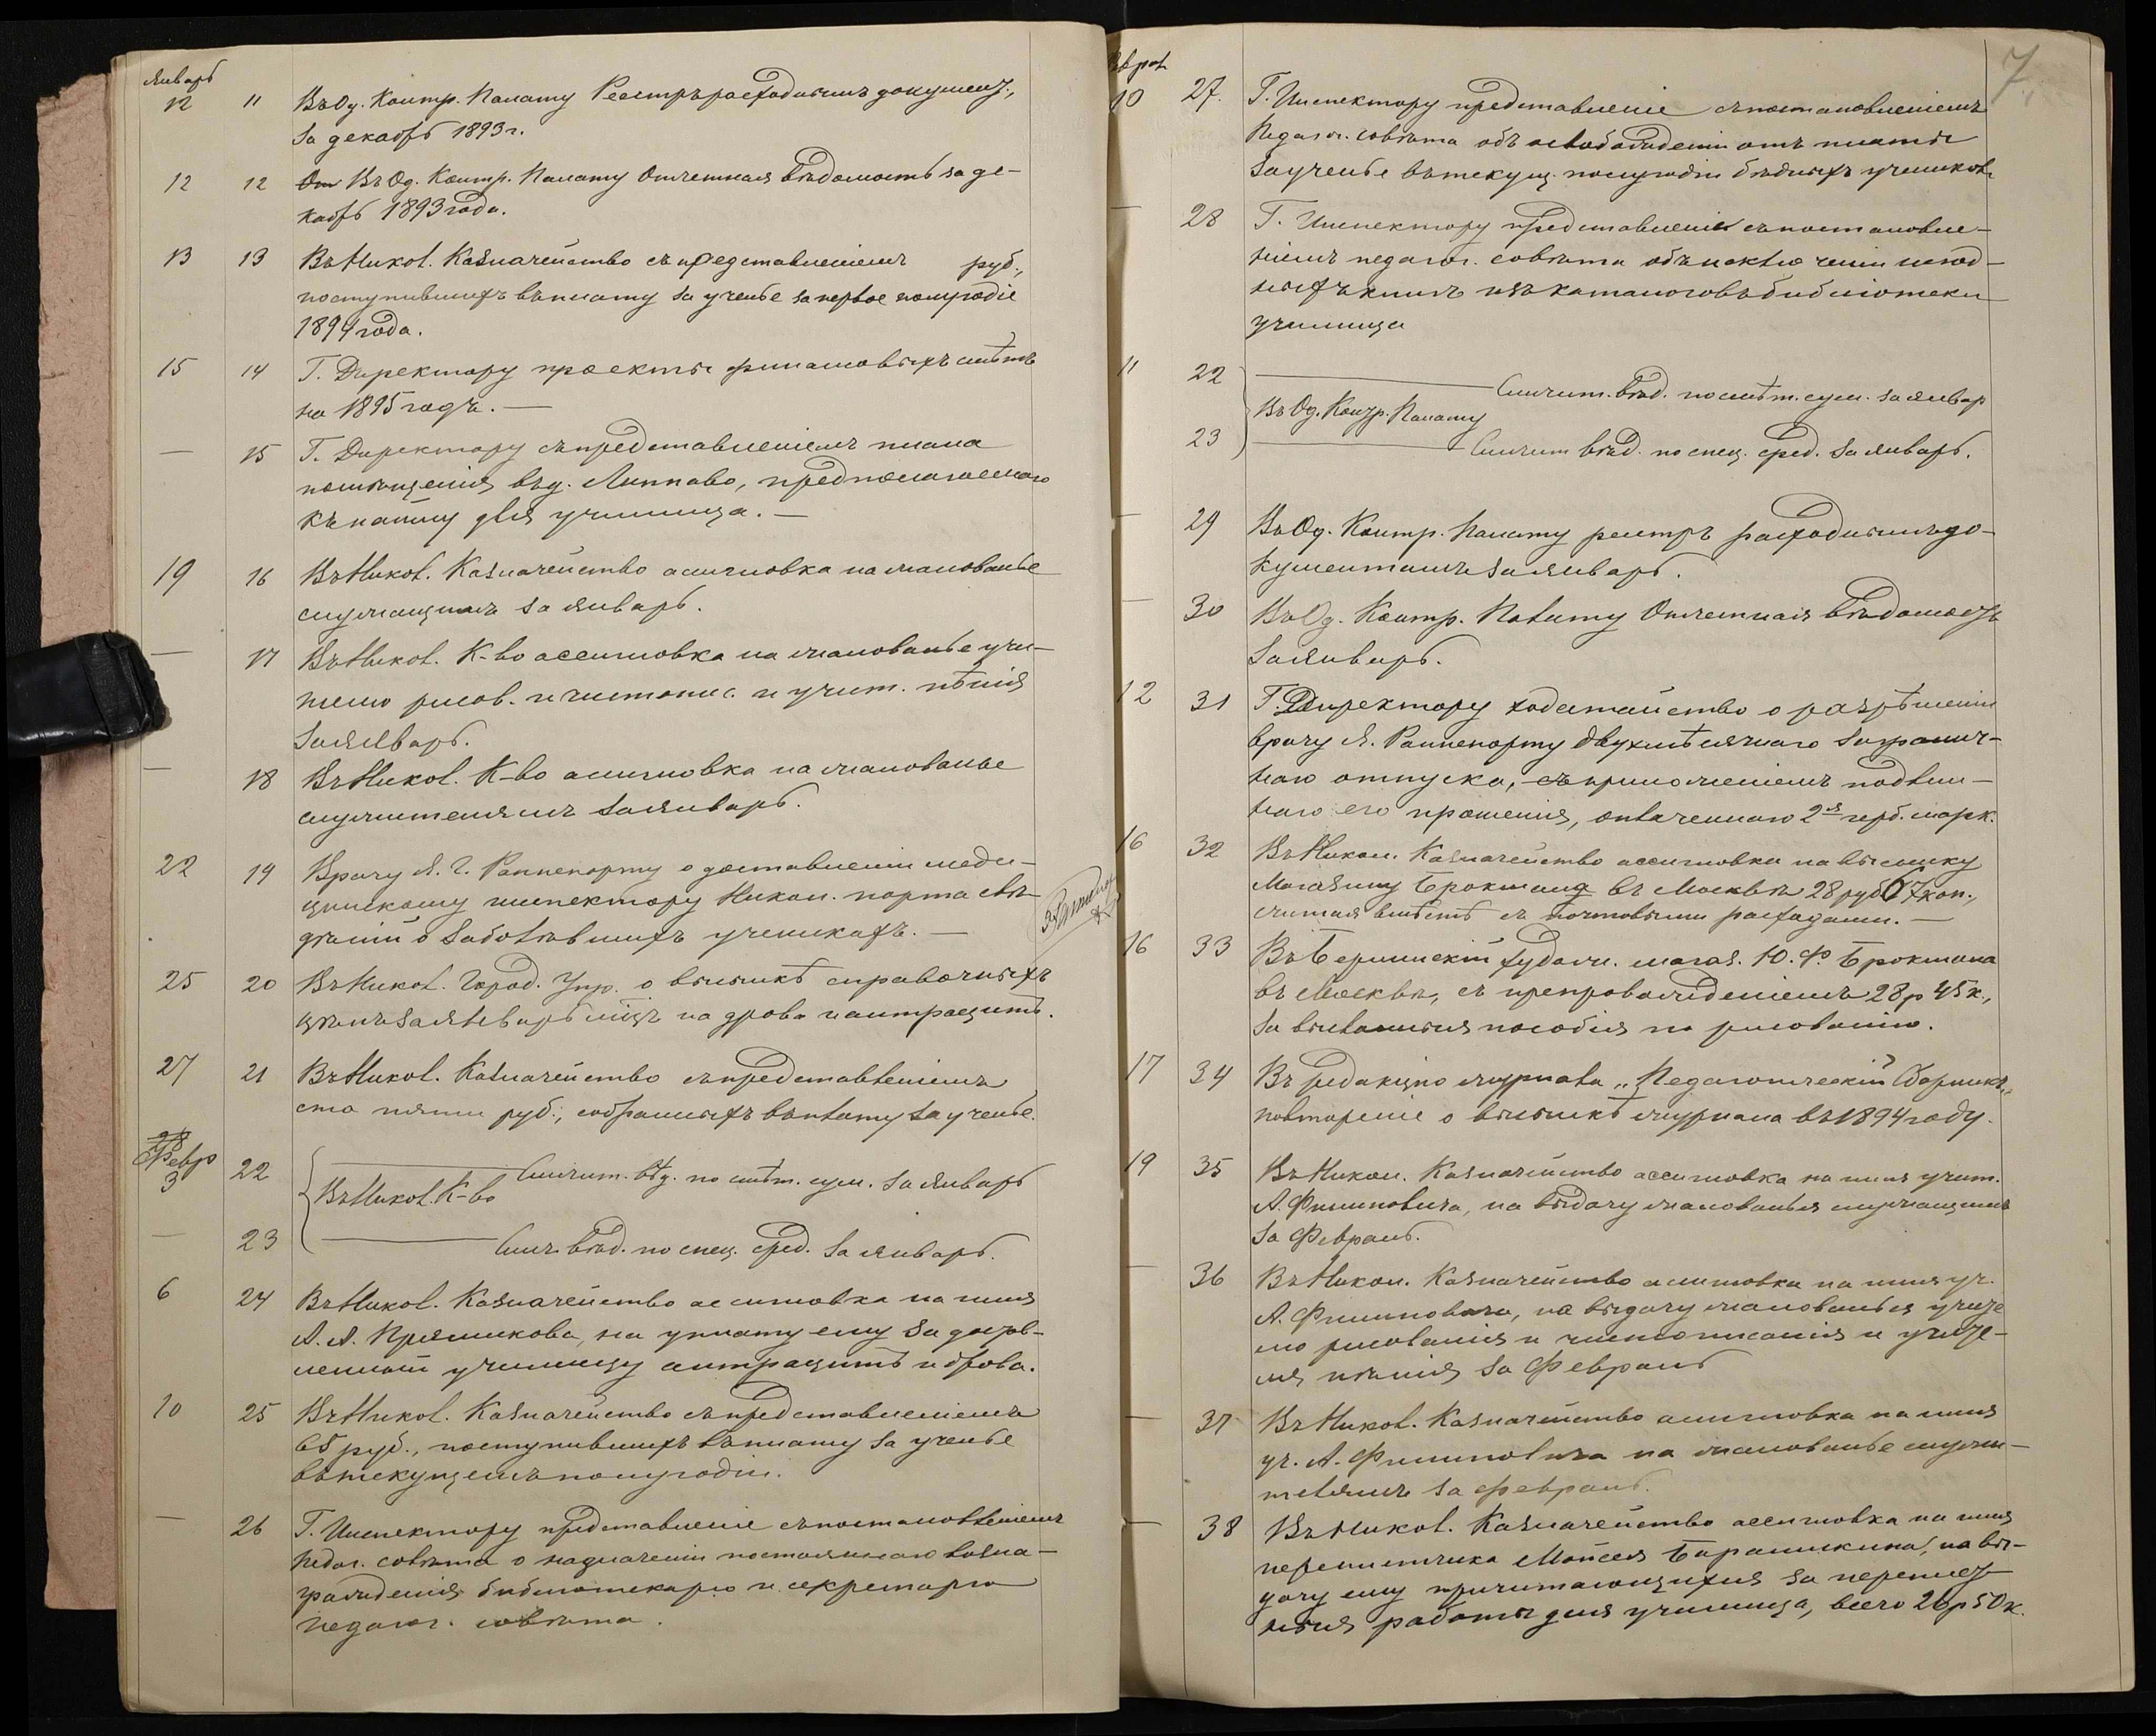 Январь
12 11 Въ Од. Контр. Палату Реестръ расходнымъ докумен.,
за декабрь 1893 г.
12 12 Въ Од. Контр. Палату Отчетная вѣдомость за де-
кабрь 1893 года.
13 13 Въ Никол. Казначейство съ представленіемъ руб.,
поступившихъ въ плату за ученье за первое полугодіе
1894 года.
15 14 Г. Директору проекты финансовыхъ смѣтъ
на 1895 годъ. —
— 15 Г. Директору съ представленіемъ плана
помѣщенія въ д. Липпаво, предполагаемаго
къ найму для училища. —
19 16 Въ Никол. Казначейство ассигновка на жалованье
служащимъ за январь.
— 17 Въ Никол. К-во ассигновка на жалованье учи-
телю рисов. и чистопис. и учит. пѣнія
за январь.
— 18 Въ Никол. К-во ассигновка на жалованье
служителямъ за январь.
22 19 Врачу Я. Г. Раппепорту о доставленіи меди-
цинскому инспектору Никол. порта свѣ-
дѣній о заболѣвшихъ ученикахъ. —
25 20 Въ Никол. Город. Упр. о высылкѣ справочныхъ
цѣнъ за январь мцъ на дрова и антрацитъ.
27 21 Въ Никол. Казначейство съ представленіемъ
ста пяти руб., собранныхъ въ плату за ученье.
28
Февр
3 22 Въ Никол. К-во Симчит. вѣд. по смѣт. сум. за январь
— 23 Симч. вѣд. по спец. сред. за январь.
6 24 Въ Никол. Казначейство ассигновка на имя
А. А. Прямикова, на уплату ему за достав-
ленный училищу антрацитъ и дрова.
10 25 Въ Никол. Казначейство съ представленіемъ
65 руб., поступившихъ въ плату за ученье
въ текущемъ полугодіи.
— 26 Г. Инспектору представленіе съ постановленіемъ
педог. совѣта о назначеніи постояннаго возна-
гражденія библіотекарю и секретарю
педагог. совѣта.
7.
10 27. Г. Инспектору представленіе съ постановленіемъ
Педагог. совѣта объ освобожденіи отъ платы
за ученье въ текущ. полугодіи бѣдныхъ учениковъ
— 28 Г. Инспектору представленіе съ постановле-
ніемъ педагог. совѣта объ исключеніи негод-
ныхъ книгъ изъ каталоговъ библіотеки
училища
11 22 Симчит. вѣд. по смѣт. сум. за январ
Въ Од. Контр. Палату
23 Симчит вѣд. по спец. сред. за январь.
— 29 Въ Од. Контр. Палату реестръ расходнымъ до-
кументамъ за январь.
— 30 Въ Од. Контр. Палату Отчетная вѣдомость
за январь.
12 31 Г. Директору ходатайство о разрѣшеніи
врачу Я. Раппепорту двухмѣсячнаго загранич-
наго отпуска, съ приложеніемъ подлин-
наго его прошенія, оплаченнаго 2-я герб. марк.
16 32 Въ Никол. Казначейство ассигновка на высылку
Магазину Брокманд въ Москвѣ 28 руб 67 коп.,
считая вмѣстѣ съ почтовыми расходами. —
16 33 Въ Берлинскій худож. магаз. Ю. Ф. Брокмана
въ Москвѣ, съ препровожденіемъ 28 р 45 к.,
за высланныя пособія по рисованію.
17 34 Въ редакцію журнала „Педагогическій Сборникъ„
повтореніе о высылкѣ журнала въ 1894 году.
19 35 Въ Никол. Казначейство ассигновка на имя учит.
А. Филиповича, на выдачу жалованья служащимъ
за Февраль.
— 36 Въ Никол. Казначейство ассигновка на имя уч.
А. Филиповича, на выдачу жалованья учите
лю рисованія и чистописанія и учите-
ля пѣнія за Февраль
— 37 Въ Никол. Казначейство ассигновка на имя
уч. А. Филиповича на жалованье служи-
телямъ за февраль.
— 38 Въ Никол. Казначейство ассигновка на имя
переписчика Мойсея Баранникина, на вы-
дачу ему причитающихся за переписч
ныя работы для училища, всего 20 р 50 к.